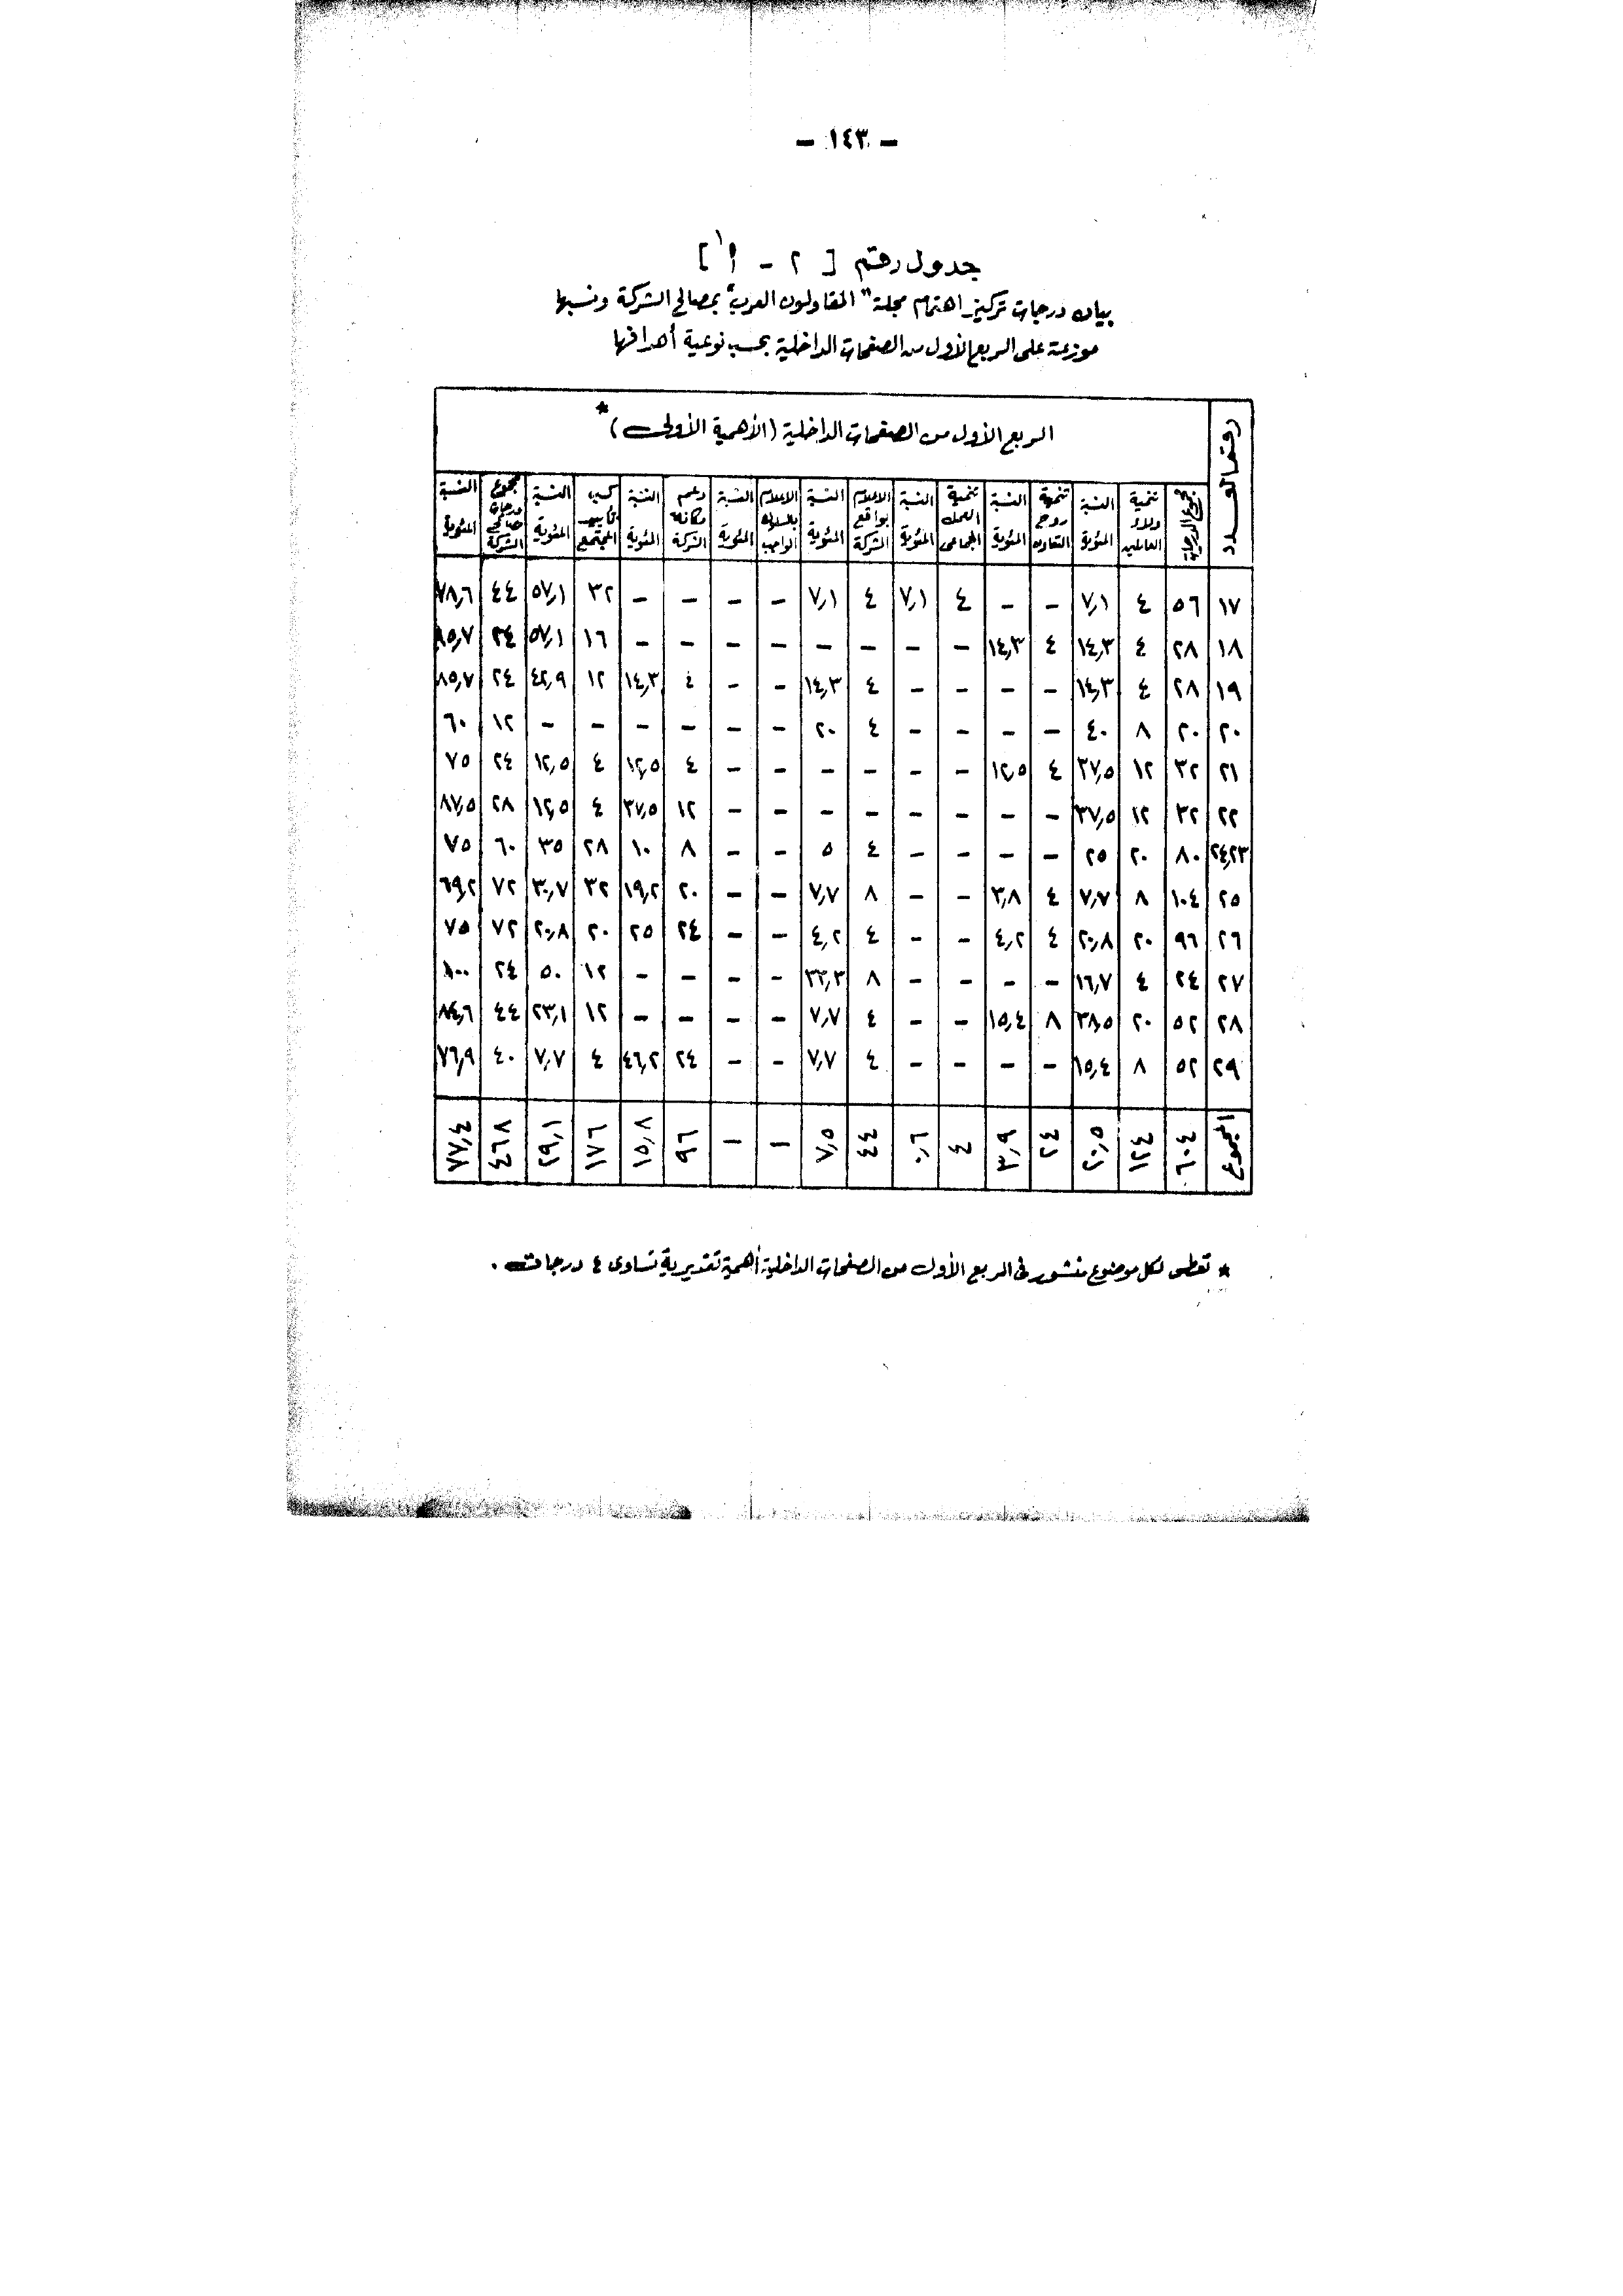 - ١٤٣ -
جدول رقم [ ٢ - أ ١ ]
بيان درجات تركيز اهتمام مجلة "المقاولون العرب" بمصالح الشركة ونسبها
موزعة على الربع الأول من الصفحات الداخلية بحسب نوعية أهدافها
رقم العدد الربع الأول من الصفحات الداخلية (الأهمية الأولى) *
مجموع الدرجات تنمية ولاء العاملين النسبة المئوية تنمية روح التعاون النسبة المئوية تنمية العمل الجماعى النسبة المئوية الاعلام بواقع الشركة النسبة المئوية الاعلام بالسلوك الواجب النسبة المئوية دعم مكانة الشركة النسبة المئوية كسب تأييد المجتمع النسبة المئوية مجموع درجات صالح الشركة النسبة المئوية
١٧ ٥٦ ٤ ٧,١ - - ٤ ٧,١ ٤ ٧,١ - - - - ٣٢ ٥٧,١ ٤٤ ٧٨,٦
١٨ ٢٨ ٤ ١٤,٣ ٤ ١٤,٣ - - - - - - - - ١٦ ٥٧,١ ٢٤ ٨٥,٧
١٩ ٢٨ ٤ ١٤,٣ - - - - ٤ ١٤,٣ - - ٤ ١٤,٣ ١٢ ٤٢,٩ ٢٤ ٨٥,٧
٢٠ ٢٠ ٨ ٤٠ - - - - ٤ ٢٠ - - - - - - ١٢ ٦٠
٢١ ٣٢ ١٢ ٣٧,٥ ٤ ١٢,٥ - - - - - - ٤ ١٢,٥ ٤ ١٢,٥ ٢٤ ٧٥
٢٢ ٣٢ ١٢ ٣٧,٥ - - - - - - - - ١٢ ٣٧,٥ ٤ ١٢,٥ ٢٨ ٨٧,٥
٢٤,٢٣ ٨٠ ٢٠ ٢٥ - - - - ٤ ٥ - - ٨ ١٠ ٢٨ ٣٥ ٦٠ ٧٥
٢٥ ١٠٤ ٨ ٧,٧ ٤ ٣,٨ - - ٨ ٧,٧ - - ٢٠ ١٩,٢ ٣٢ ٣٠,٧ ٧٢ ٦٩,٢
٢٦ ٩٦ ٢٠ ٢٠,٨ ٤ ٤,٢ - - ٤ ٤,٢ - - ٢٤ ٢٥ ٢٠ ٢٠,٨ ٧٢ ٧٥
٢٧ ٢٤ ٤ ١٦,٧ - - - - ٨ ٣٣,٣ - - - - ١٢ ٥٠ ٢٤ ١٠٠
٢٨ ٥٢ ٢٠ ٣٨,٥ ٨ ١٥,٤ - - ٤ ٧,٧ - - - - ١٢ ٢٣,١ ٤٤ ٨٤,٦
٢٩ ٥٢ ٨ ١٥,٤ - - - - ٤ ٧,٧ - - ٢٤ ٤٦,٢ ٤ ٧,٧ ٤٠ ٧٦,٩
المجموع ٦٠٤ ١٢٤ ٢٠,٥ ٢٤ ٣,٩ ٤ ٠,٦ ٤٤ ٧,٥ - - ٩٦ ١٥,٨ ١٧٦ ٢٩,١ ٤٦٨ ٧٧,٤
* تعطى لكل موضوع منشور فى الربع الأول من الصفحات الداخلية أهمية تقديرية تساوى ٤ درجات .